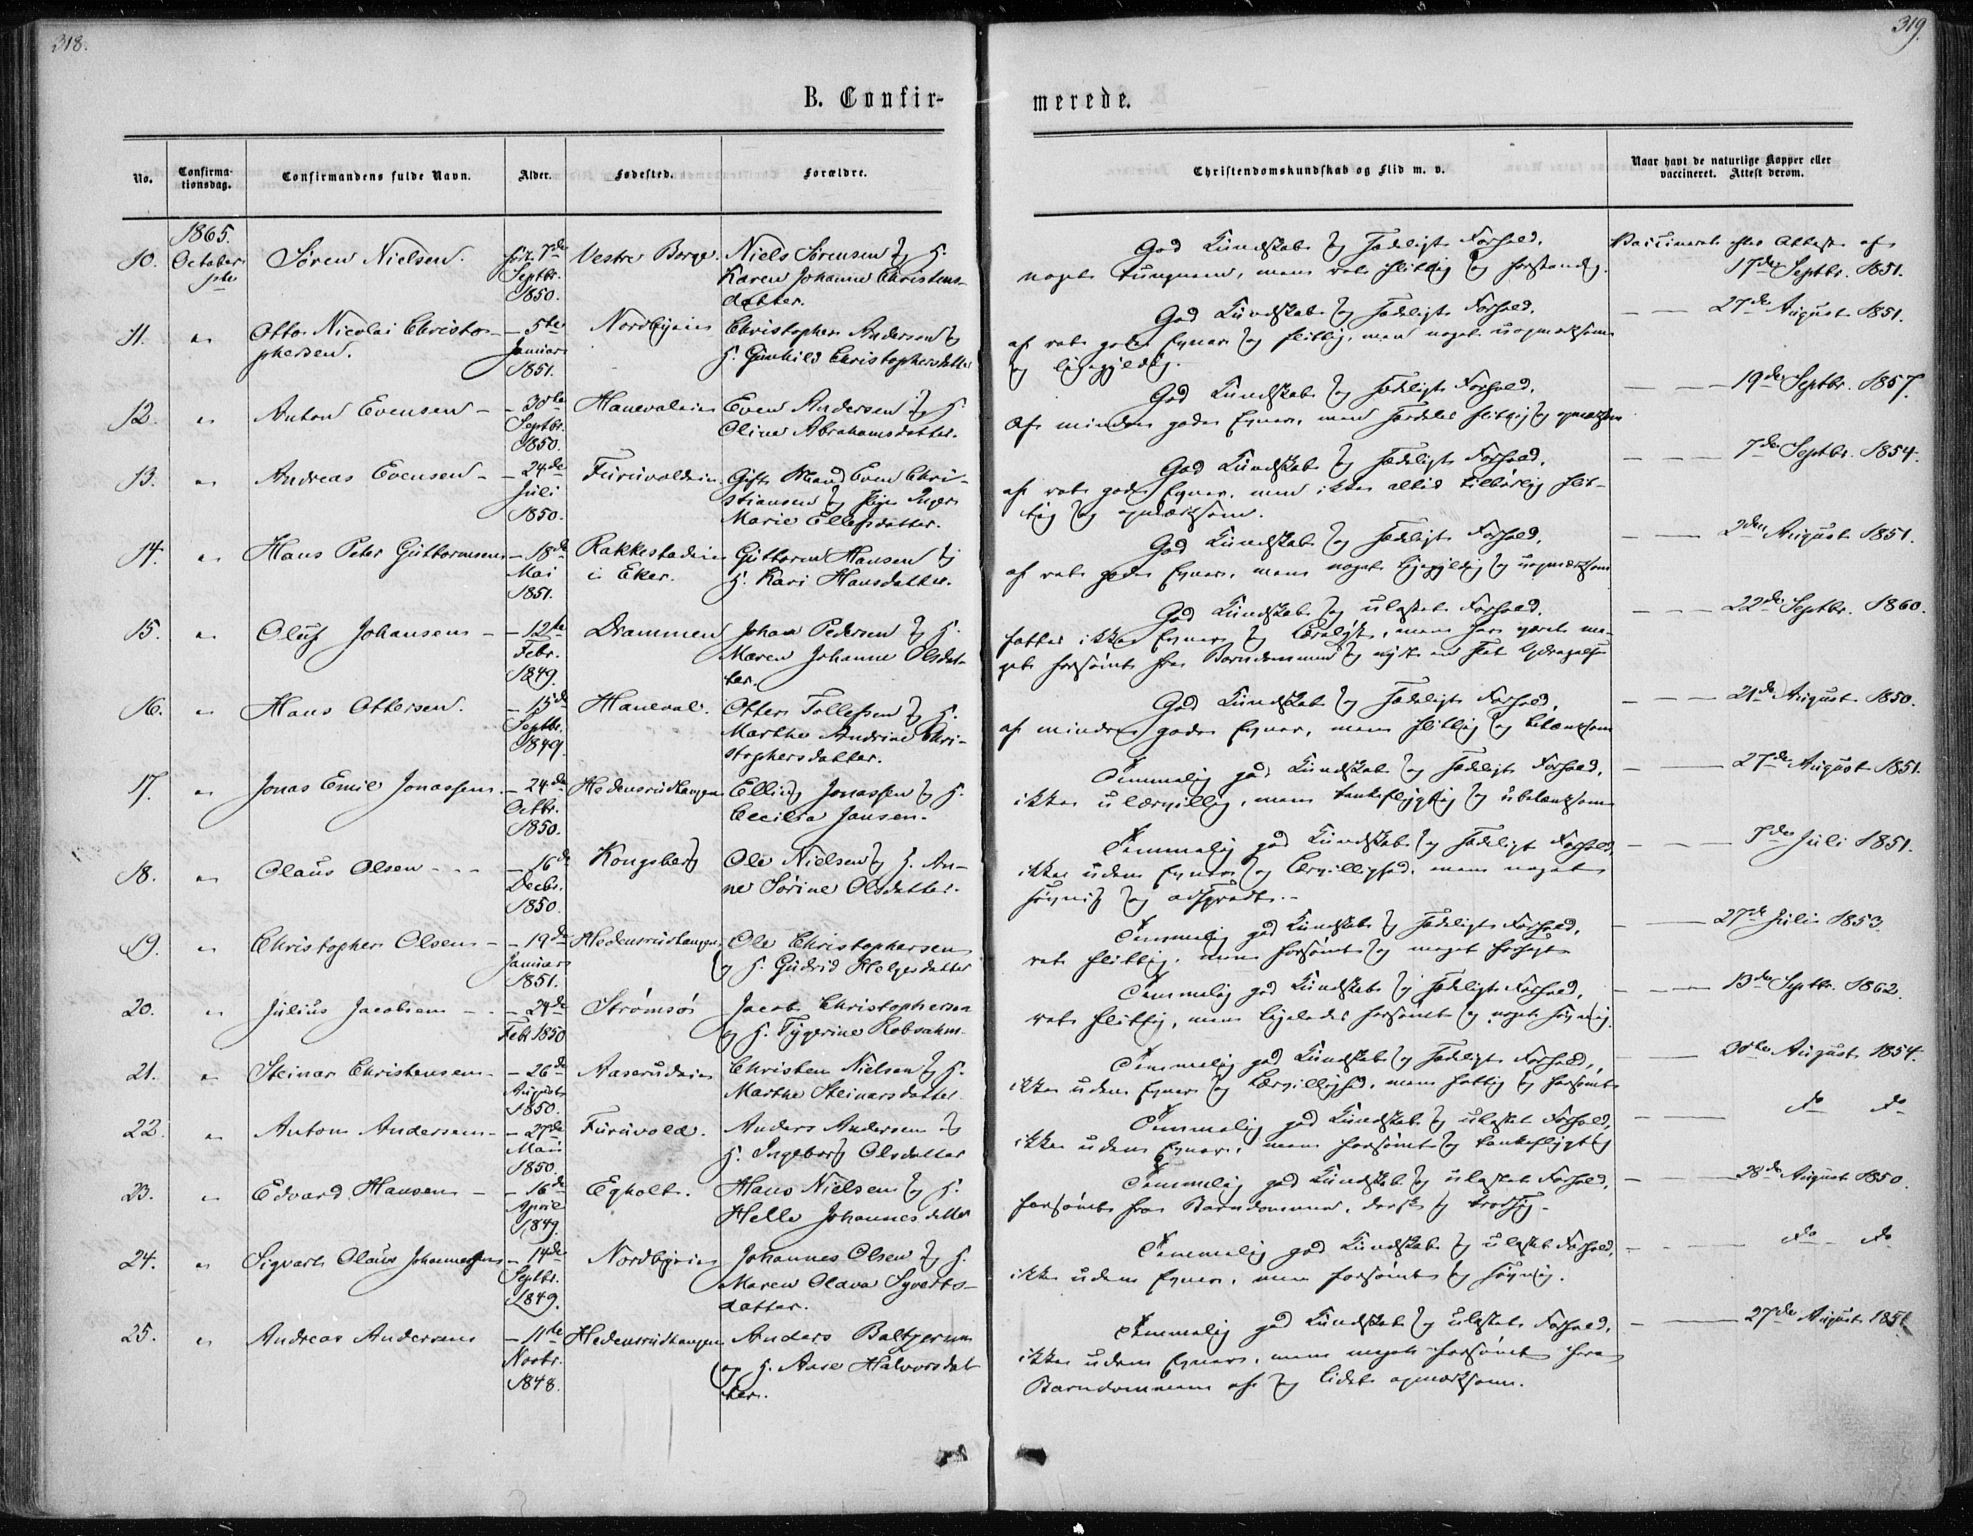 318.
319.
B. Confir-
merede.
No.
Confirma-
tionsdag.
Confirmandens fulde Navn.
Alder.
Fødested.
Forældre.
Christendomskundskab og Flid m. v.
Naar havt de naturlige Kopper eller
vaccineret. Attest derom.
1865.
10. October Søren Nielsen. 7de Vestre Berge. Niels Sørensen og H.
1ste Septbr. Karen Johanne Christens-
1850. datter.
God Kundskab og sædeligt Forhold,
noget tungnem, men ret flittig og forstandig.
Vaccineret efter Attest af
17de Septbr. 1851.
11. " Otto Nicolai Christo- – 5te Nordbyeie Christopher Andersen og
phersen. Januar H. Gunhild Christophersdatter
1851.
God Kundskab og sædeligt Forhold,
af ret gode Evner og flittig, men noget uopmærksom
og ligegyldig.
— — 27de August 1851.
12. " Anton Evensen – – 30te Haneval­eie Even Andersen og H.
Septbr. Oline Abrahamsdatter.
1850.
God Kundskab og sædeligt Forhold,
Af mindre gode Evner, men særdeles flittig og opmærksom
— — 19de Septbr. 1857.
13. " Andreas Evensen – – 24de Furuvoldeie Gift Mand Even Chri-
Juli stiansen og Pige Inger
1850. Marie Ellefsdatter.
God Kundskab og sædeligt Forhold,
af ret gode Evner, men ikke altid tilbørlig flit-
tig og opmærksom.
— — 7de Septbr. 1854.
14. " Hans Peter Guttormsen – 18de Rakkestadeie Guttorm Hansen og
Mai i Eker. H. Kari Hansdatter.
1851.
God Kundskab og sædeligt Forhold,
af ret gode Evner, men noget ligegyldig og uopmærksom
— — 2den August 1851.
15. " Oluf Johansen – – 12te Drammen Johan Pedersen og H.
Febr. Maren Johanne Olsdat-
1849. ter.
God Kundskab og ulastet Forhold,
fattes ikke Evner og Lærelyst, men har været me-
get forsømt fra Barndommen og nydt en slet Opdragelse
— — 22de Septbr. 1860.
16. " Hans Ottersen. – 15de Haneval. Otter Tollefsen og H.
Septbr. Marthe Andrine Chri-
1849. stophersdatter.
God Kundskab og sædeligt Forhold,
af mindre gode Evner, men flittig og betænksom
— — 21de August 1850.
17. " Jonas Emil Jonassen. – 24de Hedensrudhaugen Elling Jonassen og H.
Octbr. Cecilia Jansen.
1850.
Temmelig god Kundskab og sædeligt Forhold,
ikke ulærvillig, men tankeflygtig og ubetænksom
— — 27de August 1851.
18. " Olaus Olsen – – – – 16de Kongsberg Ole Nielsen og H. An-
Decbr. ne Sørine Olsdatter.
1850.
Temmelig god Kundskab og sædeligt Forhold,
ikke uden Evner og Lærvillighed, men noget
søvnig og adspredt. –
— — 7de Juli 1851.
19. " Christopher Olsen – – 19de Hedensrudhaugen Ole Christophersen
Januar og H. Gudrid Helgesdatter
1851.
Temmelig god Kundskab og sædeligt Forhold,
ret flittig, men forsømt og meget forsagt
— — 27de Juli 1853.
20. " Julius Jacobsen – – – 24de Strømsø Jacob Christophersen
Febr 1850 og H. Tygerine Robsahm.
Temmelig god Kundskab og sædeligt Forhold,
ret flittig, men ligeledes forsømt og noget søvnig.
— — 13de Septbr. 1862.
21. " Steinar Christensen – – 26de Aaserudeie Christen Nielsen og H.
August Marthe Steinarsdatter.
1850.
Temmelig god Kundskab og sædeligt Forhold,
ikke uden Evner og Lærvillighed, men fattig og forsømt
— — 30te August 1854.
22. " Anton Andersen – – 27de Furuvold. Anders Andersen og
Mai H. Ingeborg Olsdatter
1850.
Temmelig god Kundskab og ulastet Forhold,
ikke uden Evner, men forsømt og tankeflygtig
— — do do
23. " Edvard Hansen – – 16de Egholt. Hans Nielsen og H.
April Helle Johannesdatter
1849.
Temmelig god Kundskab og ulastet Forhold,
forsømt fra Barndommen, dorsk og trodsig.
— — 28de August 1850.
24. " Sigvart Olaus Johannesen – 14de Nordbyeie Johannes Olsen og H.
Septbr. Maren Olava Syverts-
1849. datter.
Temmelig god Kundskab og ulastet Forhold,
ikke uden Evner, men forsømt og søvnig.
— — do do
25. " Andreas Andersen – 11te Hedensrudhaugen Anders Baltzersen
Novbr. og H. Aase Halvorsdat-
1848. ter.
Temmelig god Kundskab og ulastet Forhold,
ikke uden Evner, men meget forsømt fra
Barndommen af og lidet opmærksom.
— — 27de August 1851